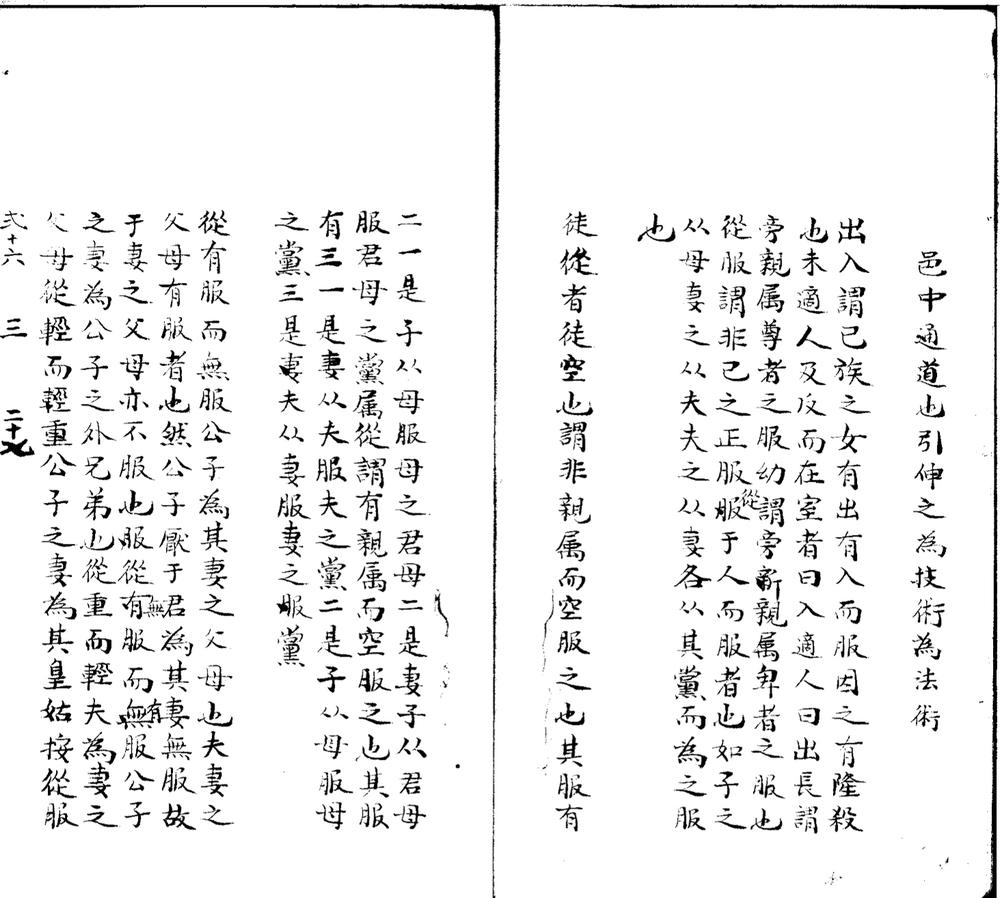 邑中通道也引伸之為技術為法術
出入謂已族之女有出有入而服因之有隆殺
也未適人及反而在室者曰入適人曰出長謂
旁親属尊者之服幼謂旁親属卑者之服也
從服謂非已之正服從服于人而服者也如子之
从母妻之从夫夫之从妻各从其黨而為之服
也
徒從者徒空也謂非親属而空服之也其服有
二一是子从母服母之君母二是妻子从君母
服君母之黨属從謂有親属而空服之也其服
有三一是妻从夫服夫之黨二是子从母服母
之黨三是夫从妻服妻之黨
從有服而無服公子為其妻之父母也夫妻之
父母有服者也然公子厭于君為其妻無服故
于妻之父母亦不服也服從無服而有服公子
之妻為公子之外兄弟也從重而輕夫為妻之
父母從輕而重公子之妻為其皇姑按從服
弍十六 三 二十七